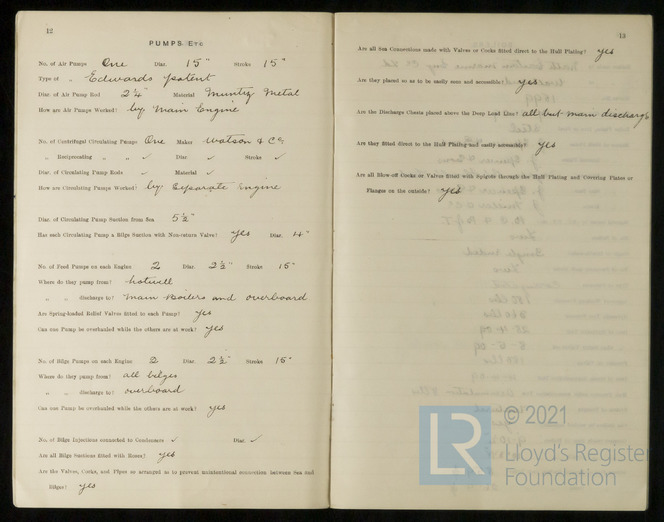 12
PUMPS ETC
No. of Air Pumps One Diar. 15" Stroke 15"
Type of „ Edwards patent
Diar. of Air Pump Rod 2¼" Material Muntz Metal
How are Air Pumps Worked? by Main Engine
No. of Centrifugal Circulating Pumps One Maker Watson & Co
„ Reciprocating „ „ ✓ Diar ✓ Stroke ✓
Diar. of Circulating Pump Rods ✓ Material ✓
How are Circulating Pumps Worked? by Separate Engine
Diar. of Circulating Pump Suction from Sea 5½"
Has each Circulating Pump a Bilge Suction with Non-return Valve? yes Diar.
No. of Feed Pumps on each Engine 2 Diar. 2½" Stroke 15"
Where do they pump from? hotwell
„ „ discharge to? Main Boilers and overboard
Are Spring-loaded Relief Valves fitted to each Pump? yes
Can one Pump be overhauled while the others are at work? yes
No. of Bilge Pumps on each Engine 2 Diar. 2½" Stroke 15"
Where do they pump from? all bilges
„ „ discharge to? overboard
Can one Pump be overhauled while the others are at work? yes
No. of Bilge Injections connected to Condensers ✓ Diar. ✓
Are all Bilge Suctions fitted with Roses? yes
Are the Valves, Cocks, and Pipes so arranged as to prevent unintentional connection between Sea and
Bilges? yes
13
Are all Sea Connections made with Valves or Cocks fitted direct to the Hull Plating? yes
Are they placed so as to be easily seen and accessible? yes
Are the Discharge Chests placed above the Deep Load Line? all but main discharge
Are they fitted direct to the Hull Plating and easily accessible? yes
Are all Blow-off Cocks or Valves fitted with Spigots through the Hull Plating and Covering Plates or
Flanges on the outside? yes
LR
© 2021
Lloyd's Register
Foundation